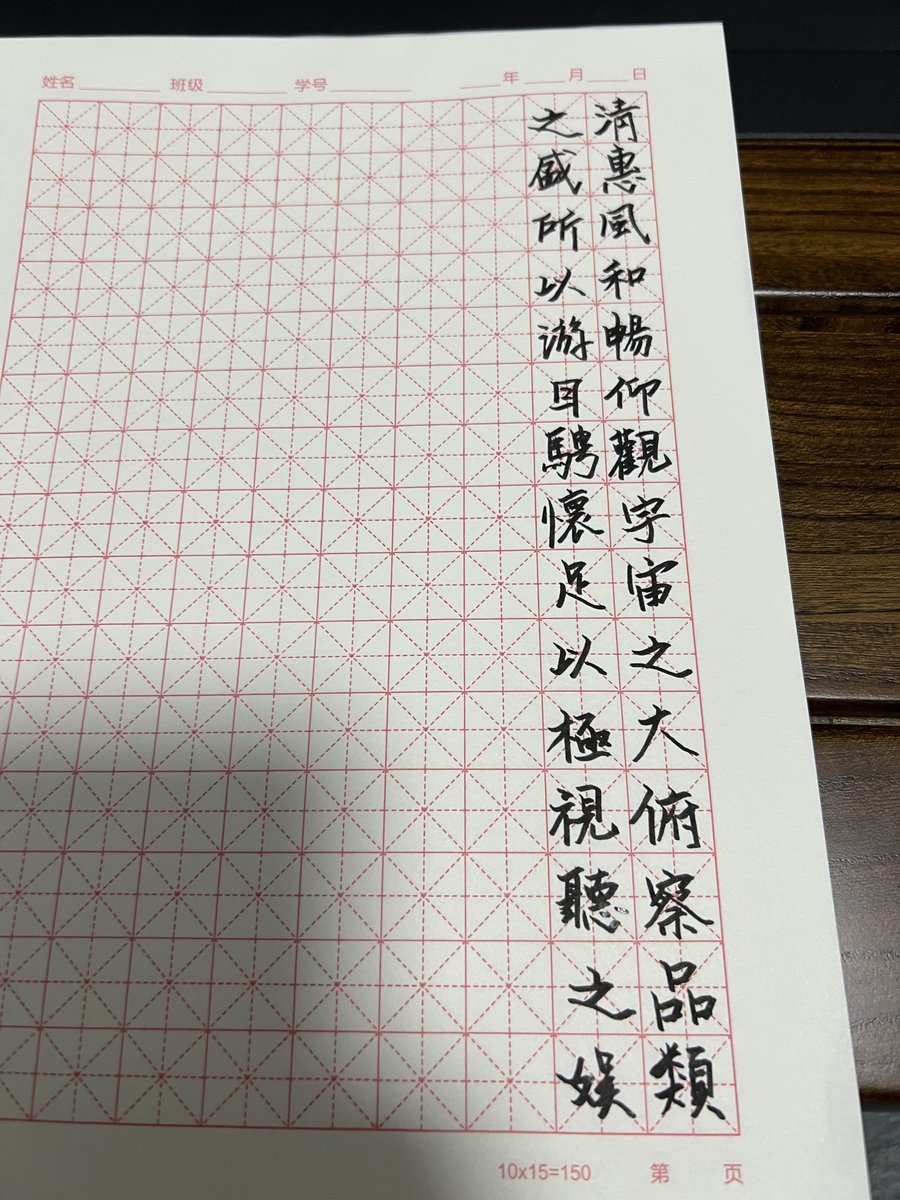 姓名 班级 学号 年 月 日
清惠風和暢仰觀宇宙之大俯察品類
之盛所以游目騁懷足以極視聽之娛
10x15=150 第 页